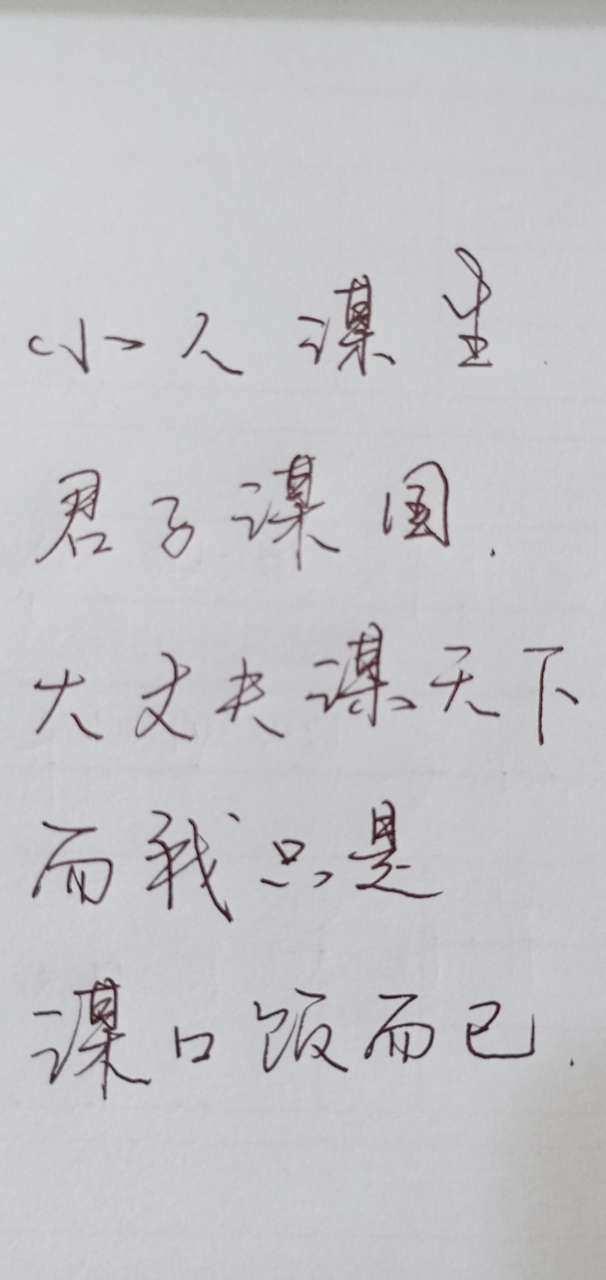 小人谋生.
君子谋国.
大丈夫谋天下
而我只是
谋口饭而已.